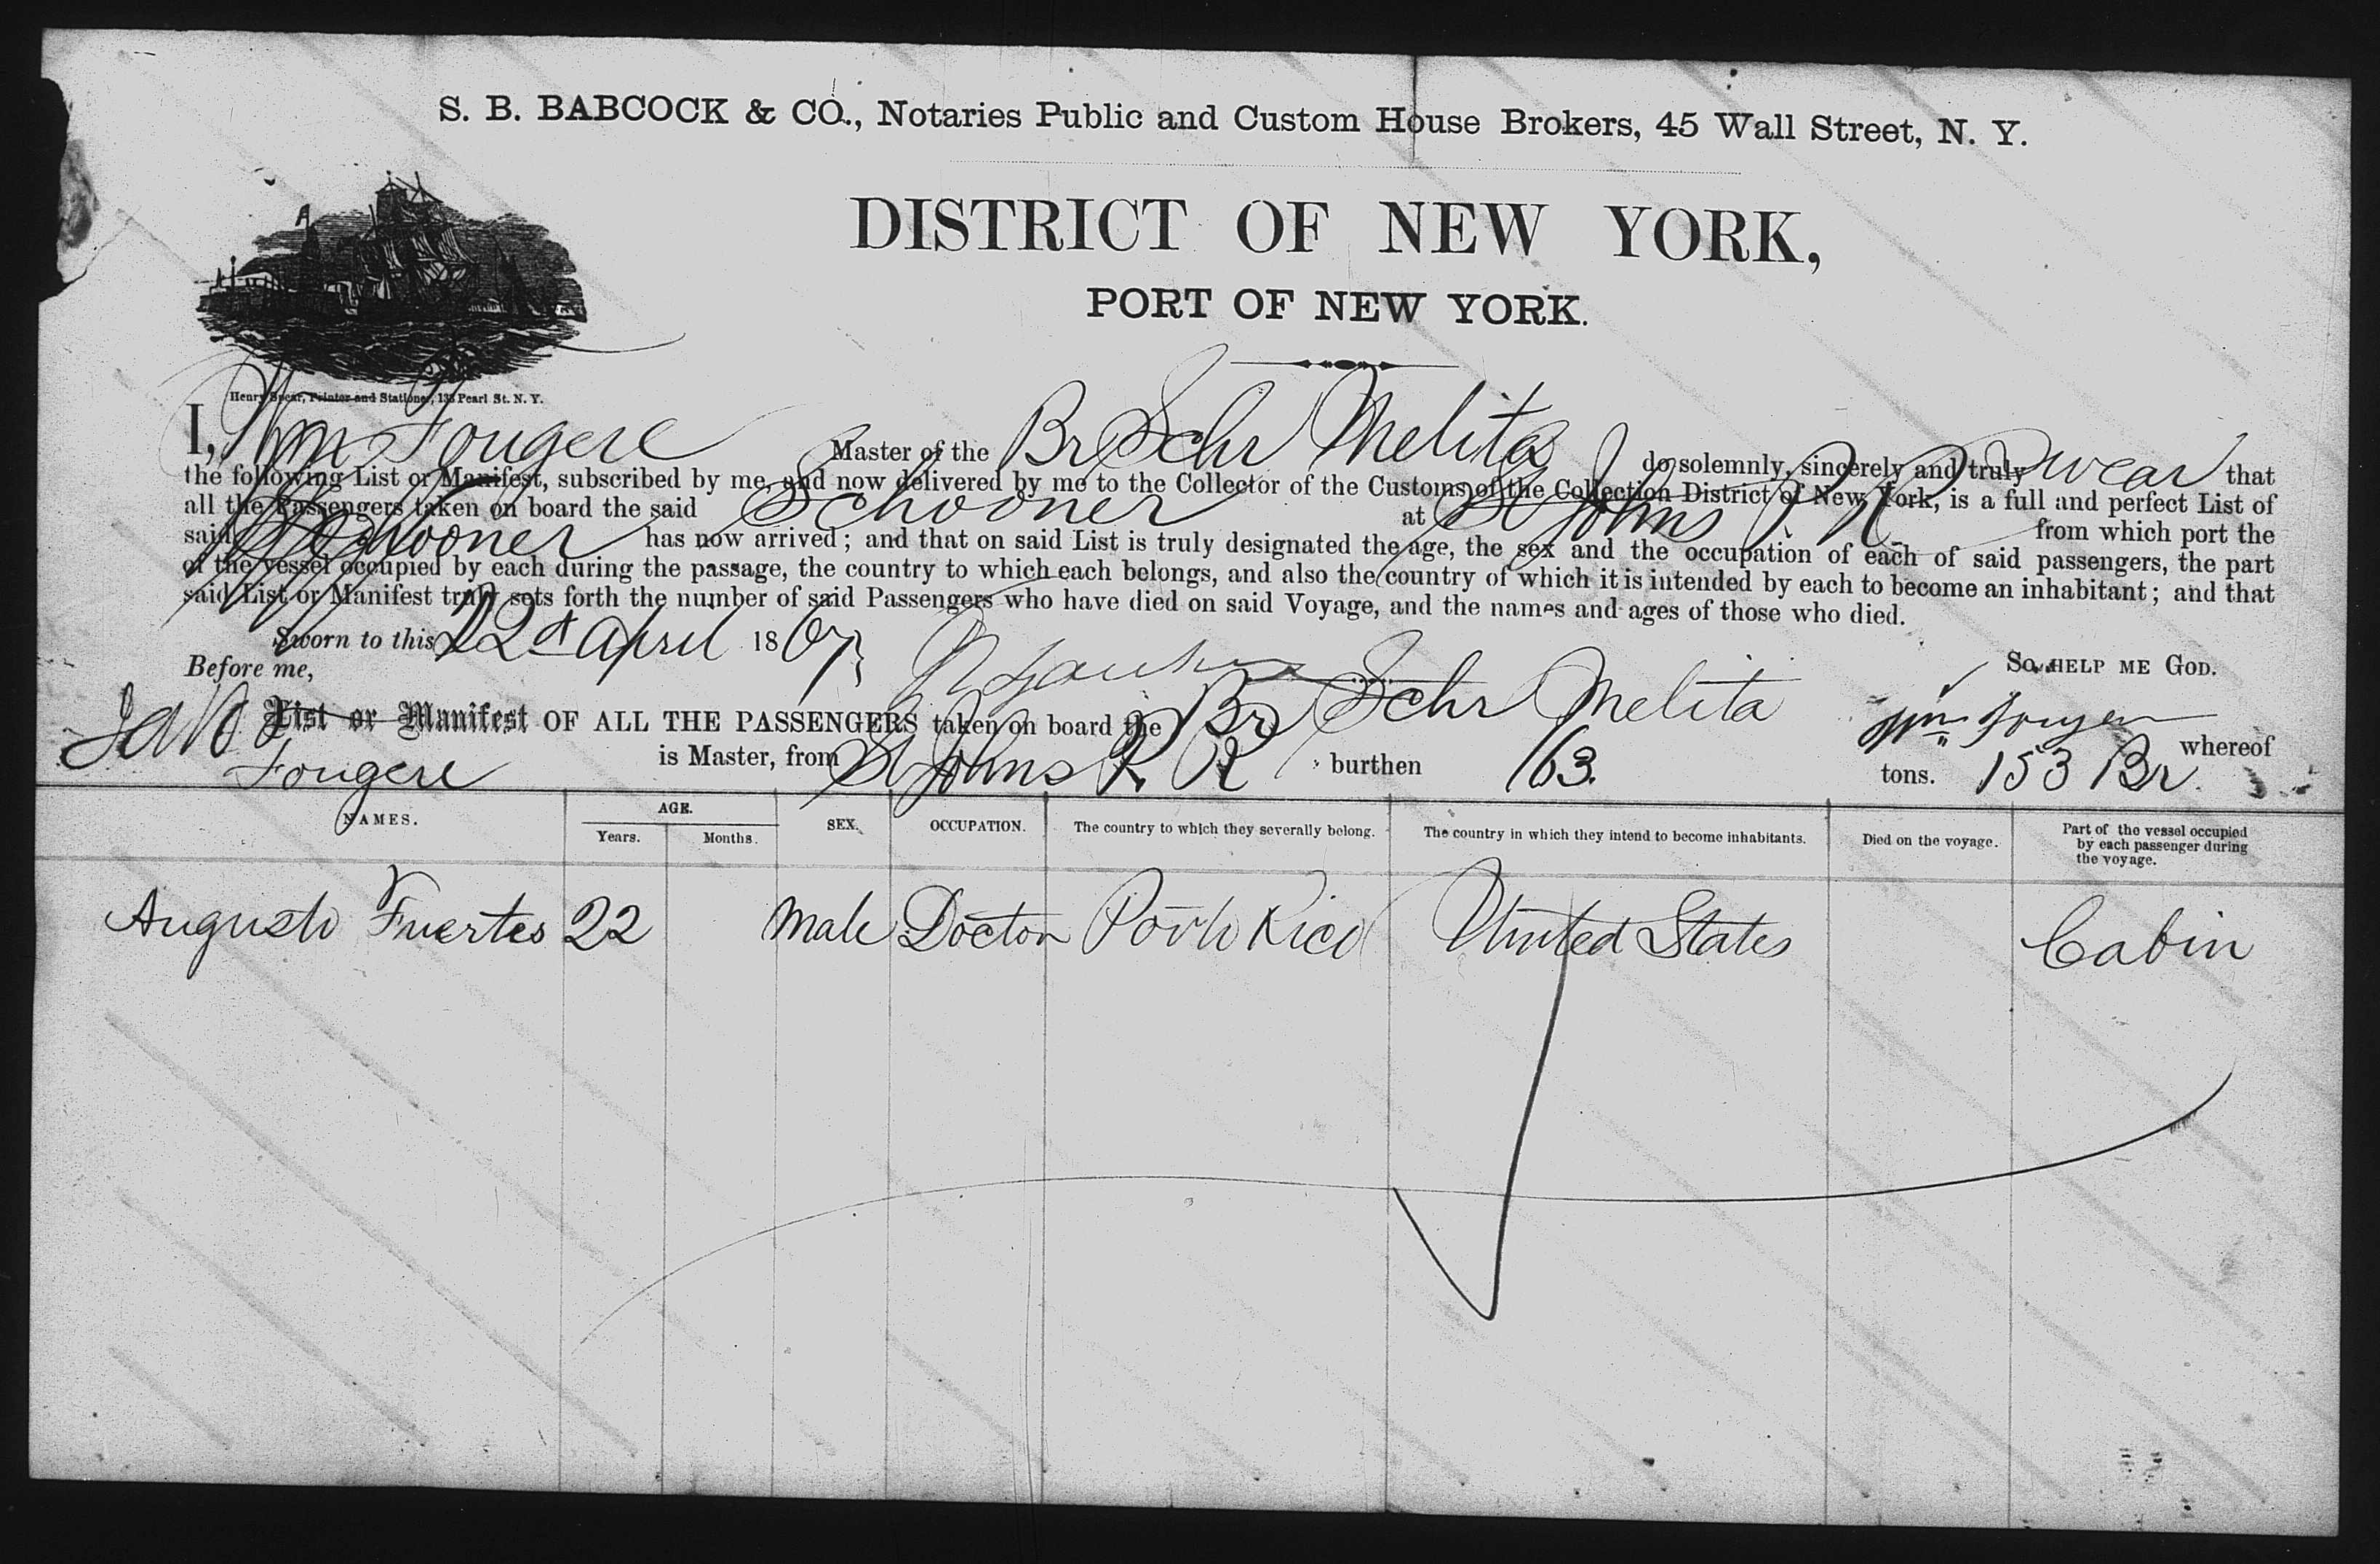 S. B. BABCOCK & CO., Notaries Public and Custom House Brokers, 45 Wall Street, N. Y.
DISTRICT OF NEW YORK,
PORT OF NEW YORK.
Henry Spear, Printer and Stationer, 133 Pearl St. N. Y.
I, Wm Fougere Master of the Br Schr Melita do solemnly, sincerely and truly swear that
the following List or Manifest, subscribed by me, and now delivered by me to the Collector of the Customs of the Collection District of New York, is a full and perfect List of
all the Passengers taken on board the said Schooner at St Johns P. R. from which port the
said Schooner has now arrived; and that on said List is truly designated the age, the sex and the occupation of each of said passengers, the part
of the vessel occupied by each during the passage, the country to which each belongs, and also the country of which it is intended by each to become an inhabitant; and that
said List or Manifest truly sets forth the number of said Passengers who have died on said Voyage, and the names and ages of those who died.
Sworn to this 22d April 1867
Before me, SO HELP ME GOD.
Wm Fougere
List or Manifest OF ALL THE PASSENGERS taken on board the Br Schr Melita whereof
Fougere is Master, from St Johns P. R burthen 163. tons. 153 Br.
NAMES. AGE. SEX. OCCUPATION. The country to which they severally belong. The country in which they intend to become inhabitants. Died on the voyage. Part of the vessel occupied by each passenger during the voyage.
Years. Months.
Augusto Fuertes 22 Male Doctor Porto Rico United States Cabin